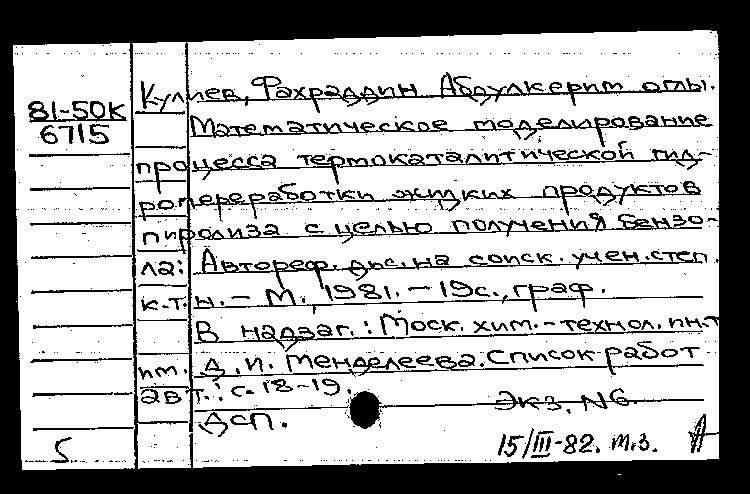 81-50К
6715
Кулиев, Фахраддин Абдулкерим оглы.
Математическое моделирование
процесса термокаталитической гид-
ропереработки жидких продуктов
пиролиза с целью получения бензо-
ла: Автореф. дис. на соиск. учен. степ.
к.т.н. - М., 1981. - 19с., граф.
В надзаг.: Моск. хим.-технол. ин-т
им. Д.И. Менделеева. Список работ
авт.: с. 18-19.
Экз. №6.
ДСП.
5
15/III-82. т.з.